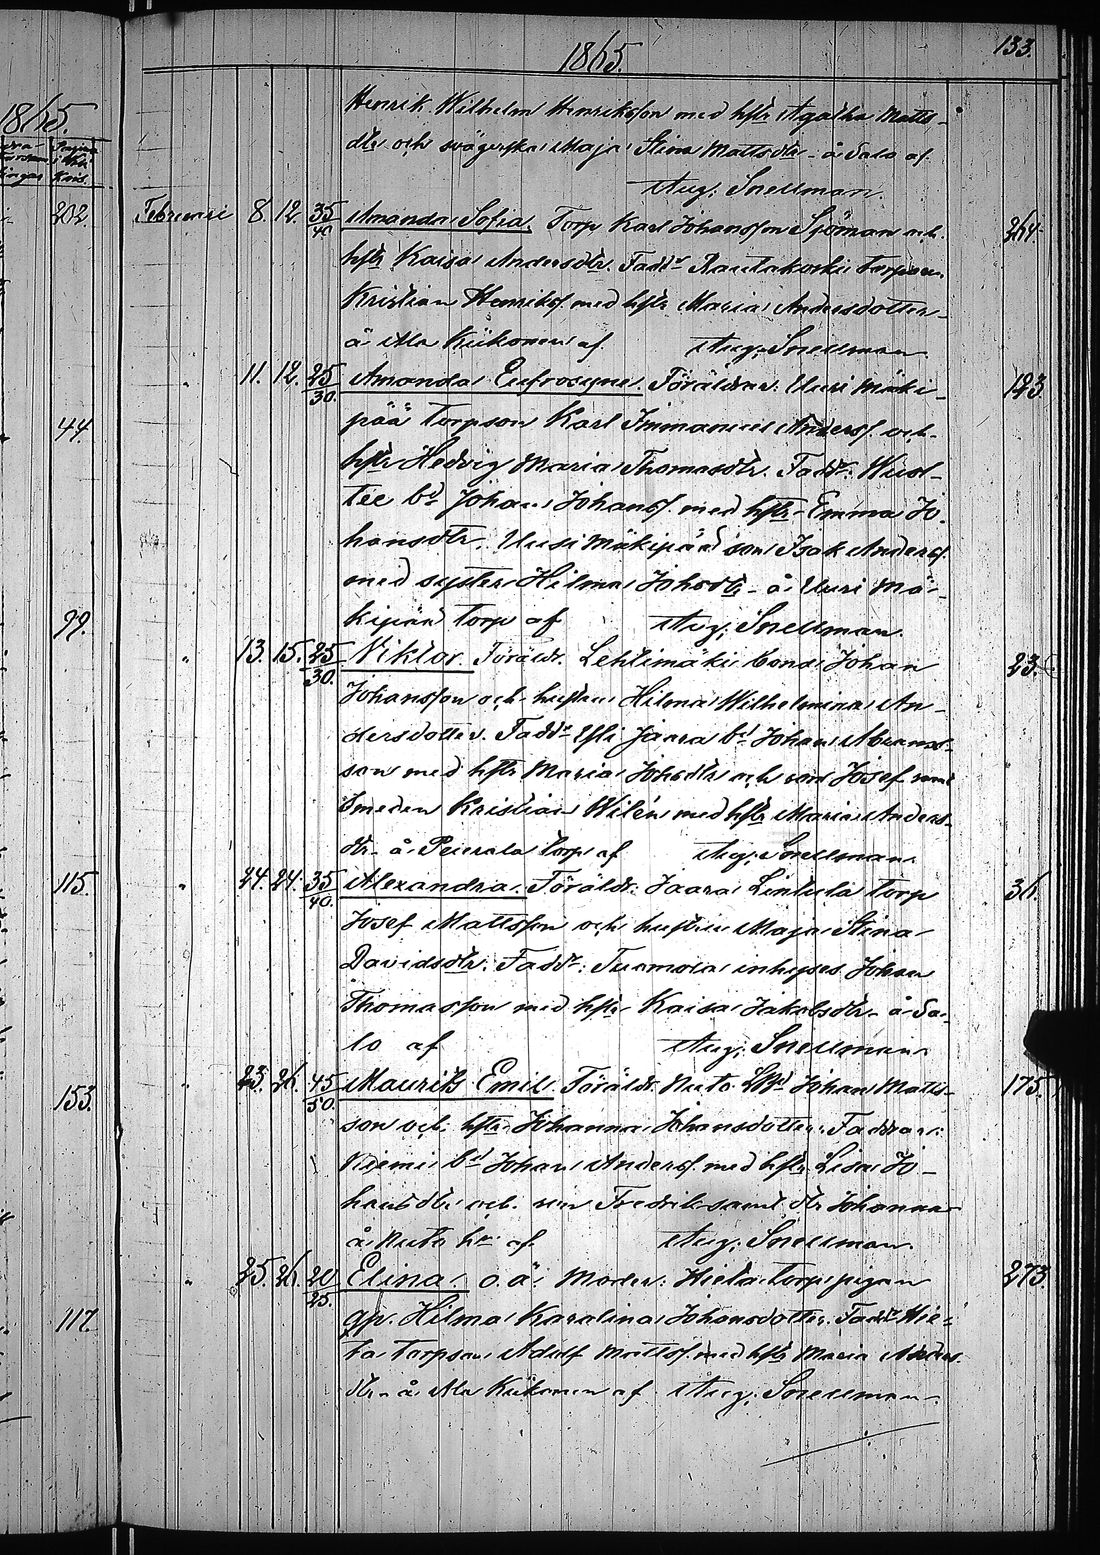 133.
1865.
1865.
Pagina
i
Henrik Wilhelm Henriksson med hstr Agatha Matts-
dtr och svägerska Maja Stina Mattsdtr å Salo af
Aug. Snellman.
202. Februari 8. 12. 35/40 Amanda Sofia. Torp Karl Johansson Sjöman och 264.
hstr Kaisa Andersdtr. Fadd: Rautakoski torparen
Kristian Henrikss. med hstr Maria Andersdotter
å Ala Kiikonen af Aug. Snellman
" 11. 12. 25/30. Amanda Eufrosyne. Föräldrar: Uusi Mäki- 123.
44. pää torpson Karl Immanuel Anderss. och
hstr Hedvig Maria Thomasdtr. Fadd:
bd Johan Johanss. med hstr Emma Jo-
hansdtr, Uusi Mäkipää son Isak Anderss.
med syster Hilma Johsdtr å Uusi Mä-
99. kipää torp af Aug. Snellman.
" 13. 15. 25/30. Viktor. Föräldr. Lehtimäki bonde Johan 23.
Johansson och hustru Hilma Wilhelmina An-
dersdotter. Fadd: Yli Jaara bd Johan
son med hstr Maria Johsdtr och son Josef samt
Smeden Kristian Wilén med hstr Maria Anders-
dtr å Peierala torp af Aug. Snellman.
115. " 24. 24. 35/40. Alexandra. Föräldr: Jaara Lintula torp 36.
Josef Mattsson och hustru Maja Stina
Davidsdtr. Fadd: Tuomola inhyses Johan
Thomasson med hstr Kaisa Jakobsdtr å Sa-
lo af Aug. Snellman
" 23. 26. 45/50. Maurits Emil. Föräldr. Nuto Johan Matts- 175.
153. son och hstr Johanna Johansdotter. Faddrar:
Niemi bd Johan Anderss. med hstr Lisa Jo-
hansdtr och son Fredrik samt dtr Johanna
å Nuto hn af Aug. Snellman.
" 25. 26. 20/25. Elina. o.ä. Moder: Hieta torp pigan 273.
117. gp. Hilma Karolina Johansdotter. Fadd: Hie-
ta torpson Adolf Mattss. med hstr Maria Anders-
dtr å Ala Kiikonen af Aug. Snellman